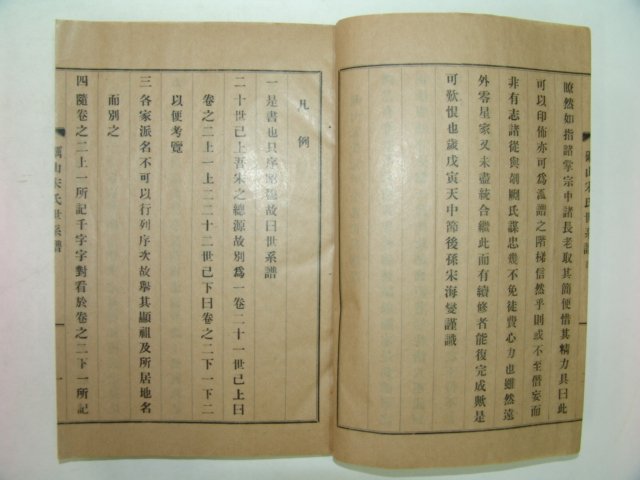 瞭然如指諸掌宗中諸長老取其簡便惜其精力具曰此
可以印佈亦可爲濫譜之階梯信然乎則或不至僭妄而
非有志諸從與胡嗣氏謀忠幾不免徒費心力也雖然遠
外零星家又未盡統合繼此而有續修者能復完成歟是
可歎恨也歲戊寅天中節後孫宋海燮謹識
山宋氏世系譜
凡例
一是書也只序昭穆故曰世系譜
二十世已上吾宋之總源故別爲一卷二十一世已上曰
卷之二上一上二二十二世已下曰卷之二下一下二
以便考覽
三各家派名不可以行列序次故擧其顯祖及所居地名
而別之
四隨卷之二上一所記千字字對看於卷之二下一所記
山宋氏世系譜
一